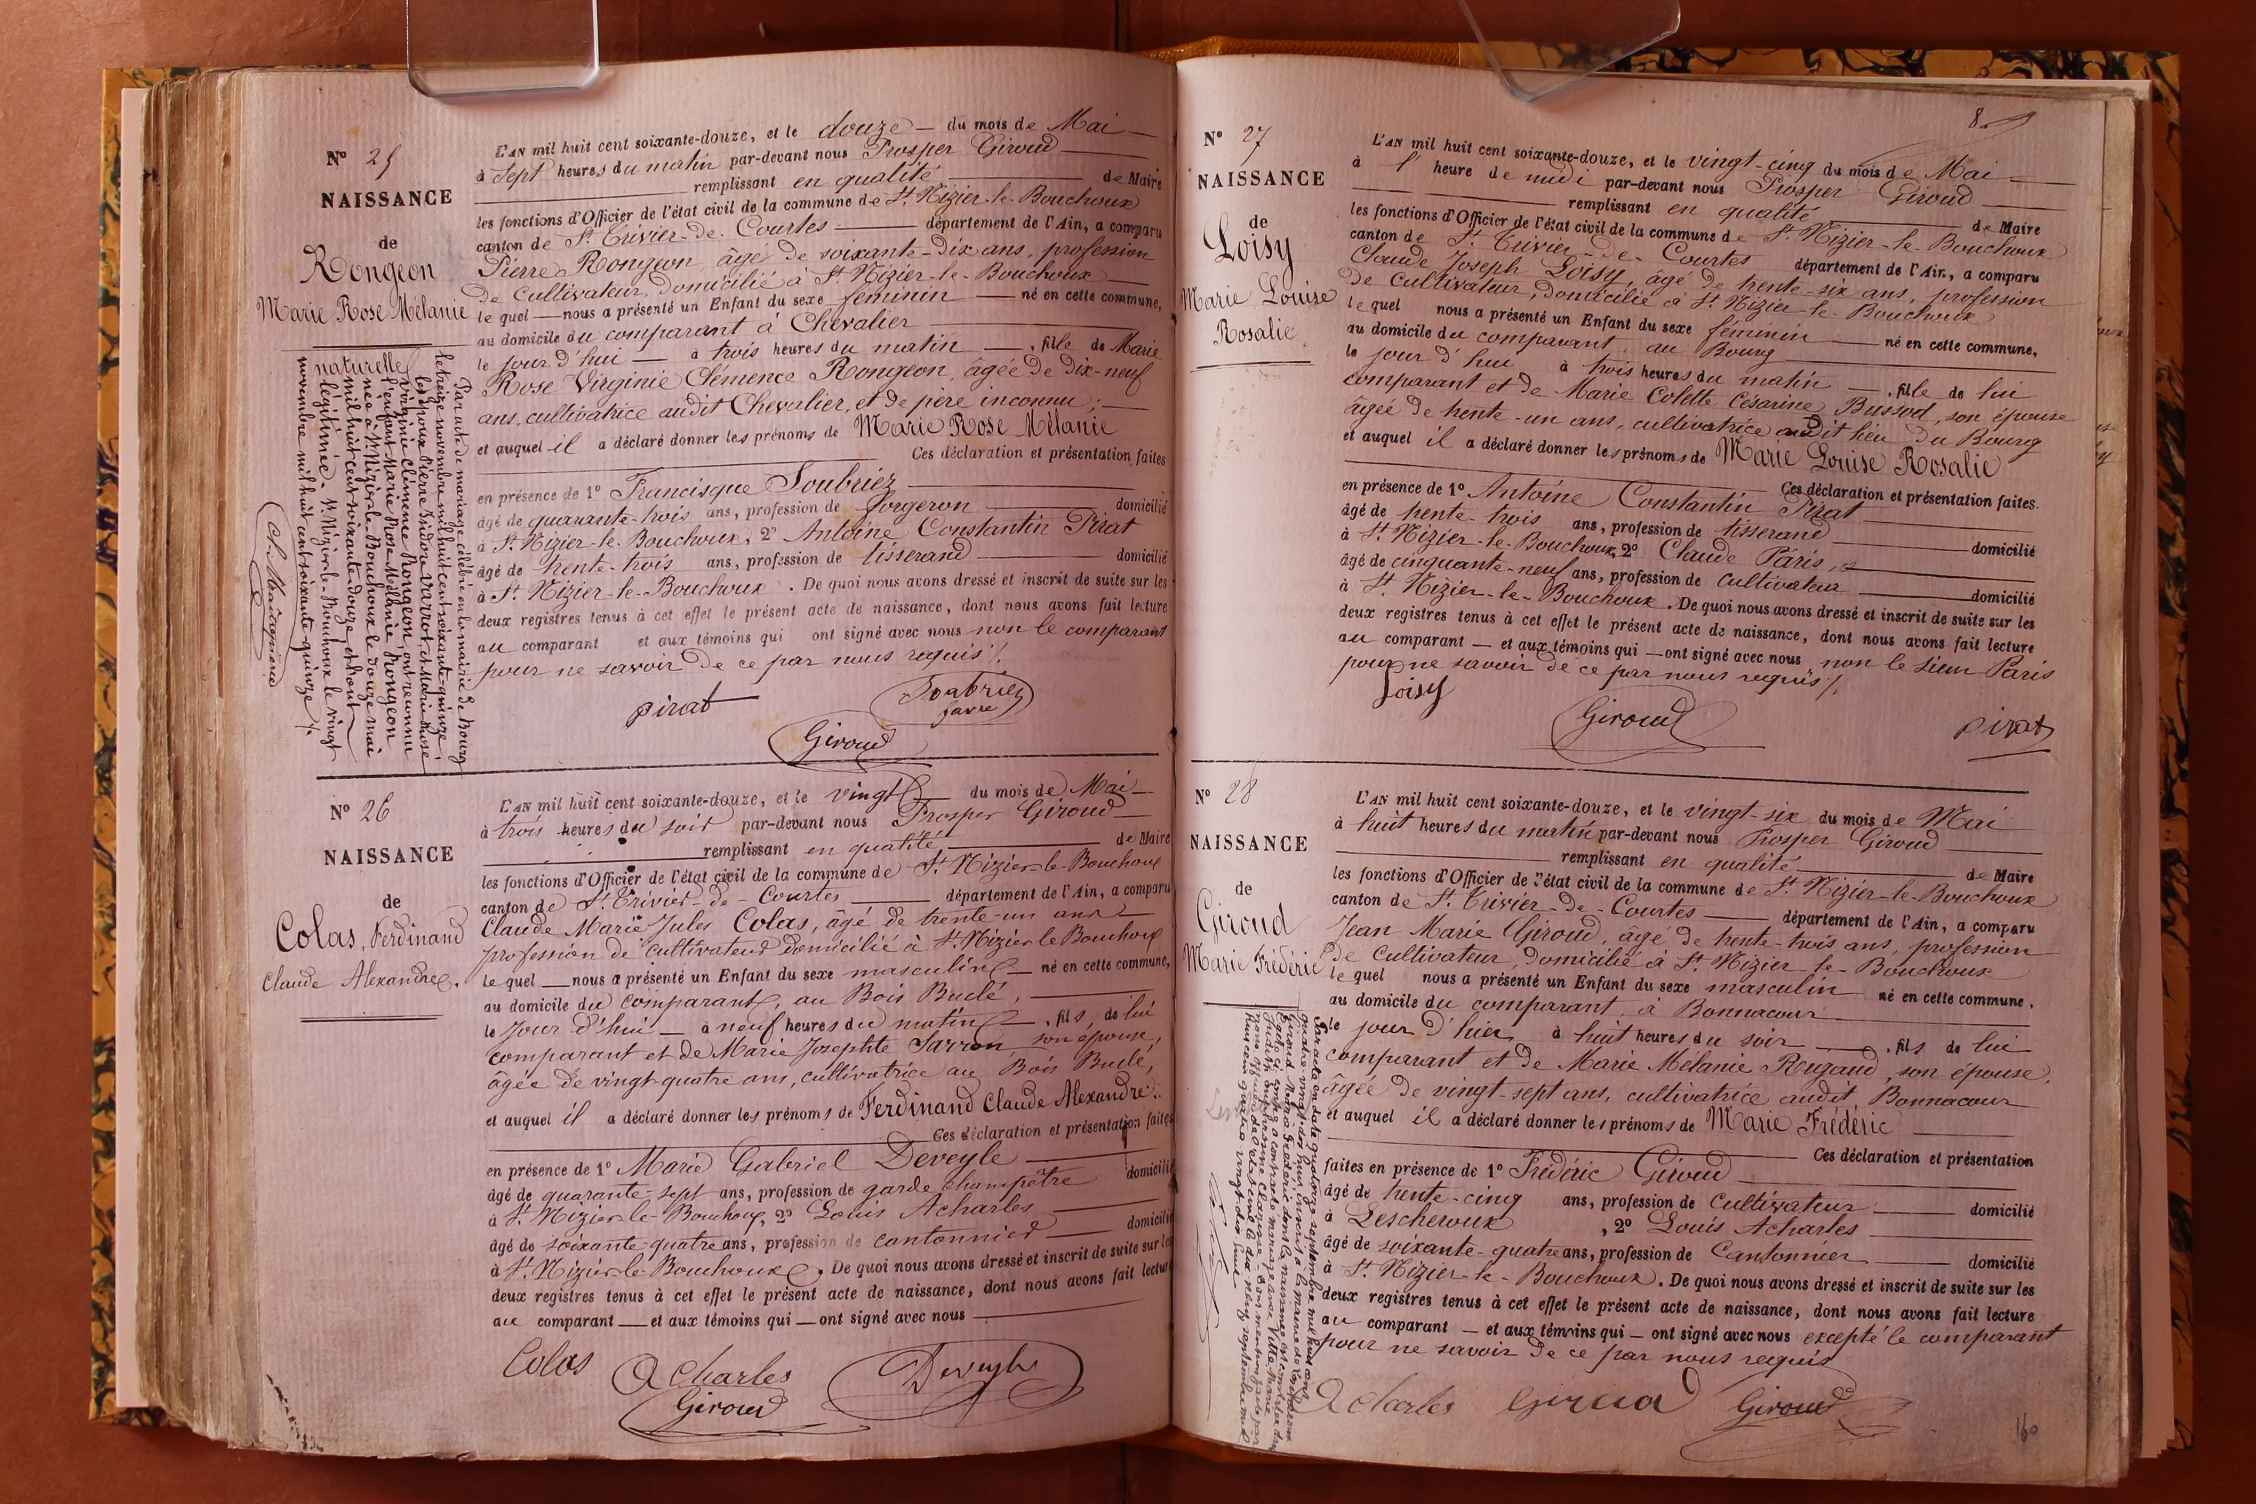 N° 25
NAISSANCE
de
Rongeon
Marie Rose Mélanie
L'AN mil huit cent soixante-douze, et le douze du mois de Mai
à sept heures du matin par-devant nous Prosper Giroud
remplissant en qualité de Maire
les fonctions d'Officier de l'état civil de la commune de St. Nizier-le-Bouchoux
canton de St. Trivier-de-Courtes département de l'Ain, a comparu
Pierre Rongeon âgé de soixante-dix ans, profession
de Cultivateur, domicilié à St. Nizier-le-Bouchoux
lequel nous a présenté un Enfant du sexe féminin né en cette commune,
au domicile du comparant à Chevalier
le jour d'hui à trois heures du matin, fille de Marie
Rose Virginie Clémence Rongeon, âgée de dix-neuf
ans, cultivatrice audit Chevalier, et de père inconnu;
et auquel il a déclaré donner les prénoms de Marie Rose Mélanie
Ces déclaration et présentation faites
en présence de 1° Francisque Soubriez
âgé de quarante-trois ans, profession de forgeron domicilié
à St. Nizier-le-Bouchoux, 2° Antoine Constantin Pirat
âgé de trente-trois ans, profession de tisserand domicilié
à St. Nizier-le-Bouchoux. De quoi nous avons dressé et inscrit de suite sur les
deux registres tenus à cet effet le présent acte de naissance, dont nous avons fait lecture
au comparant et aux témoins qui ont signé avec nous non le comparant
pour ne savoir de ce par nous requis./.
pirat
Soubriez
favre
Giroud
naturelle
Par acte de mariage célébré en la mairie de Bourg
le treize novembre mil huit cent soixante-quinze,
les époux Pierre Isidore Varrot, et Marie Rose
Virginie Clémence Rongeon, ont reconnu
l'enfant Marie Rose Mélanie Rongeon
née à St. Nizier-le-Bouchoux le douze mai
mil huit cent soixante-douze, et l'ont
légitimée. St. Nizier-le-Bouchoux le vingt
novembre mil huit cent soixante-quinze./.
N° 26
NAISSANCE
de
Colas, Ferdinand
Claude Alexandre.
L'AN mil huit cent soixante-douze, et le vingt du mois de Mai
à trois heures du soir par-devant nous Prosper Giroud
remplissant en qualité de Maire
les fonctions d'Officier de l'état civil de la commune de St. Nizier-le-Bouchoux
canton de St. Trivier-de-Courtes département de l'Ain, a comparu
Claude Marie Jules Colas, âgé de trente-un ans
profession de cultivateur domicilié à St. Nizier le Bouchoux
lequel nous a présenté un Enfant du sexe masculin né en cette commune,
au domicile du comparant, au Bois Budé,
le jour d'hui à neuf heures du matin, fils de lui
comparant et de Marie Josephte Sarron son épouse,
âgée de vingt-quatre ans, cultivatrice au Bois Budé,
et auquel il a déclaré donner les prénoms de Ferdinand Claude Alexandre.
Ces déclaration et présentation faites
en présence de 1° Marie Gabriel Deveyle
âgé de quarante-sept ans, profession de garde champêtre domicilié
à St. Nizier-le-Bouchoux, 2° Louis Acharles
âgé de soixante-quatre ans, profession de cantonnier domicilié
à St. Nizier-le-Bouchoux. De quoi nous avons dressé et inscrit de suite sur les
deux registres tenus à cet effet le présent acte de naissance, dont nous avons fait lecture
au comparant et aux témoins qui ont signé avec nous
Colas
Acharles
Deveyle
Giroud
8
N° 27
NAISSANCE
de
Loisy
Marie Louise
Rosalie
L'AN mil huit cent soixante-douze, et le vingt-cinq du mois de Mai
à l' heure de midi par-devant nous Prosper Giroud
remplissant en qualité de Maire
les fonctions d'Officier de l'état civil de la commune de St. Nizier-le-Bouchoux
canton de St. Trivier-de-Courtes département de l'Ain, a comparu
Claude Joseph Loisy, âgé de trente-six ans, profession
de cultivateur, domicilié à St. Nizier-le-Bouchoux
lequel nous a présenté un Enfant du sexe féminin né en cette commune,
au domicile du comparant, au Bourg
le jour d'hui à trois heures du matin, fille de lui
comparant et de Marie Colette Césarine Bussod, son épouse
âgée de trente-un ans, cultivatrice audit lieu du Bourg
et auquel il a déclaré donner les prénoms de Marie Louise Rosalie
Ces déclaration et présentation faites
en présence de 1° Antoine Constantin Pirat
âgé de trente-trois ans, profession de tisserand domicilié
à St. Nizier-le-Bouchoux, 2° Claude Pâris,
âgé de cinquante-neuf ans, profession de cultivateur domicilié
à St. Nizier-le-Bouchoux. De quoi nous avons dressé et inscrit de suite sur les
deux registres tenus à cet effet le présent acte de naissance, dont nous avons fait lecture
au comparant et aux témoins qui ont signé avec nous, non le sieur Pâris
pour ne savoir de ce par nous requis./.
Loisy
Giroud
pirat
N° 28
NAISSANCE
de
Giroud
Marie Frédéric
L'AN mil huit cent soixante-douze, et le vingt-six du mois de Mai
à huit heures du matin par-devant nous Prosper Giroud
remplissant en qualité de Maire
les fonctions d'Officier de l'état civil de la commune de St. Nizier-le-Bouchoux
canton de St. Trivier-de-Courtes département de l'Ain, a comparu
Jean Marie Giroud, âgé de trente-trois ans, profession
de Cultivateur, domicilié à St. Nizier-le-Bouchoux
lequel nous a présenté un Enfant du sexe masculin né en cette commune.
au domicile du comparant, à Bonnacour
le jour d'hier à huit heures du soir, fils de lui
comparant et de Marie Mélanie Rugaud, son épouse,
âgée de vingt-sept ans, cultivatrice audit Bonnacour
et auquel il a déclaré donner les prénoms de Marie Frédéric
Ces déclaration et présentation
faites en présence de 1° Frédéric Giroud
âgé de trente-cinq ans, profession de Cultivateur domicilié
à Lescheroux, 2° Louis Acharles
âgé de soixante-quatre ans, profession de Cantonnier domicilié
à St. Nizier-le-Bouchoux. De quoi nous avons dressé et inscrit de suite sur les
deux registres tenus à cet effet le présent acte de naissance, dont nous avons fait lecture
au comparant et aux témoins qui ont signé avec nous excepté le comparant
pour ne savoir de ce par nous requis
Acharles
Giroud
Giroud
160